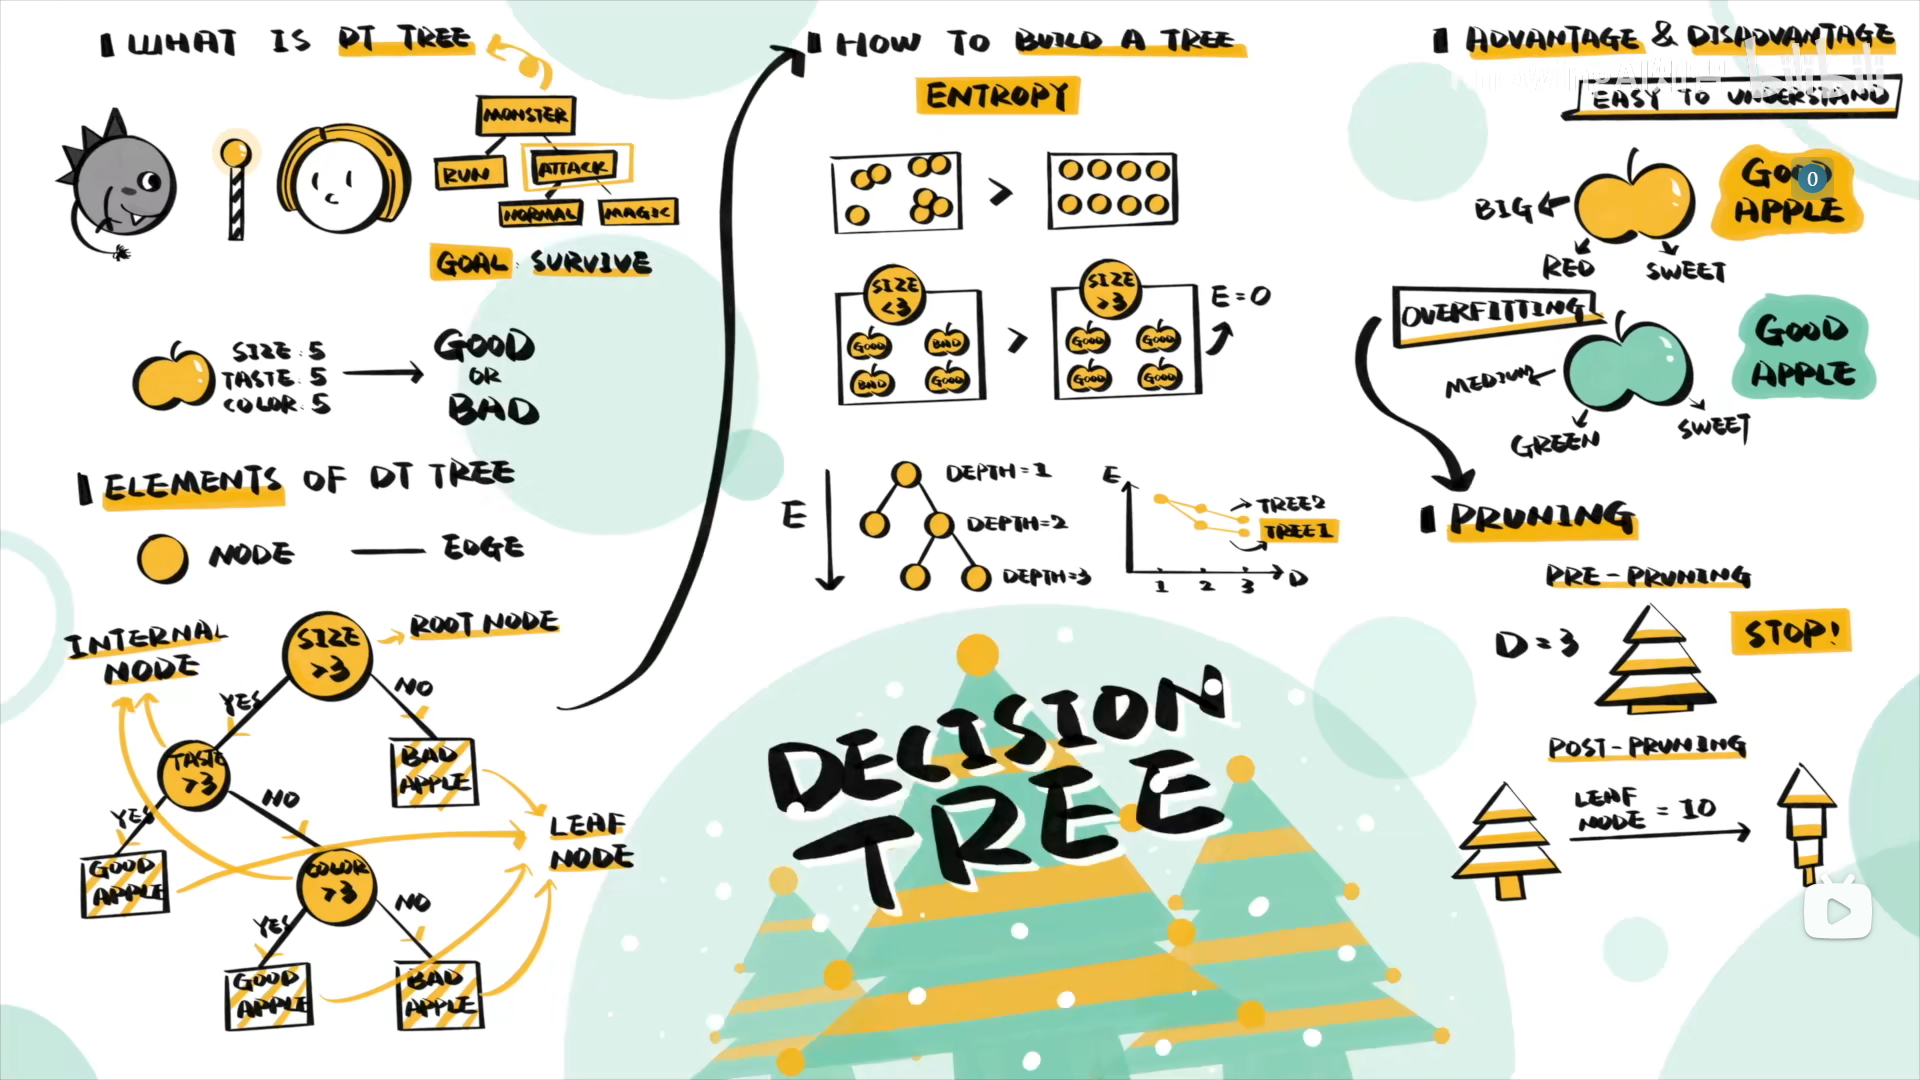 WHAT IS DT TREE
MONSTER
RUN
ATTACK
NORMAL
MAGIC
GOAL: SURVIVE
SIZE: 5
TASTE: 5
COLOR: 5
GOOD
OR
BAD
ELEMENTS OF DT TREE
NODE
EDGE
INTERNAL
NODE
SIZE
>3
ROOT NODE
YES
NO
TASTE
>3
BAD
APPLE
YES
NO
GOOD
APPLE
COLOR
>3
LEAF
NODE
YES
NO
GOOD
APPLE
BAD
APPLE
HOW TO BUILD A TREE
ENTROPY
>
SIZE
<3
GOOD
BAD
BAD
GOOD
>
SIZE
>3
GOOD
GOOD
GOOD
GOOD
E=0
E
DEPTH=1
DEPTH=2
DEPTH=3
E
TREE2
TREE1
1 2 3 D
DECISION
TREE
ADVANTAGE & DISADVANTAGE
EASY TO UNDERSTAND
BIG
RED
SWEET
GOOD
APPLE
0
OVERFITTING
MEDIUM
GREEN
SWEET
GOOD
APPLE
PRUNING
PRE-PRUNING
D=3
STOP!
POST-PRUNING
LEAF
NODE = 10